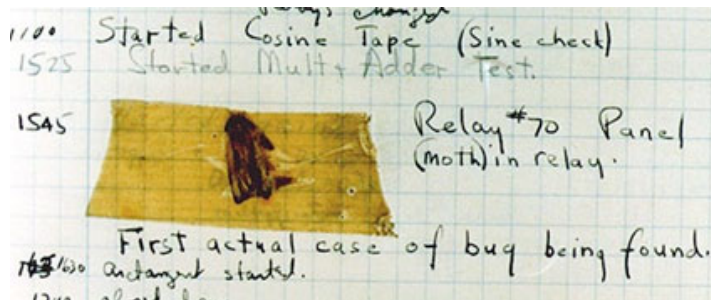 changed
1100 Started Cosine Tape (Sine check)
1525 Started Mult+ Adder Test.
1545 Relay #70 Panel
(moth) in relay.
First actual case of bug being found.
1630 arctangent started.